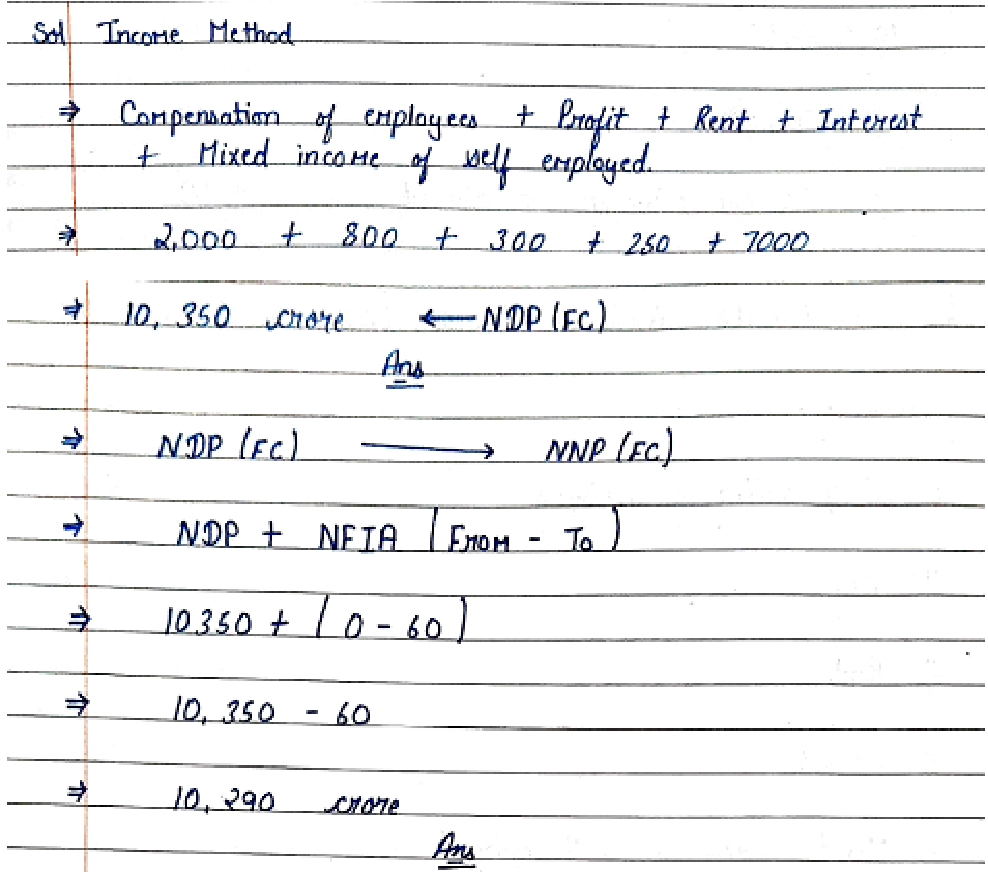 Sol Income Method
⇒ Compensation of employees + Profit + Rent + Interest
+ Mixed income of self employed.
⇒ 2,000 + 800 + 300 + 250 + 7000
⇒ 10,350 crore ← NDP (FC)
Ans
⇒ NDP (FC) ⟶ NNP (FC)
⇒ NDP + NFIA (From - To)
⇒ 10350 + (0 - 60)
⇒ 10,350 - 60
⇒ 10,290 crore
Ans